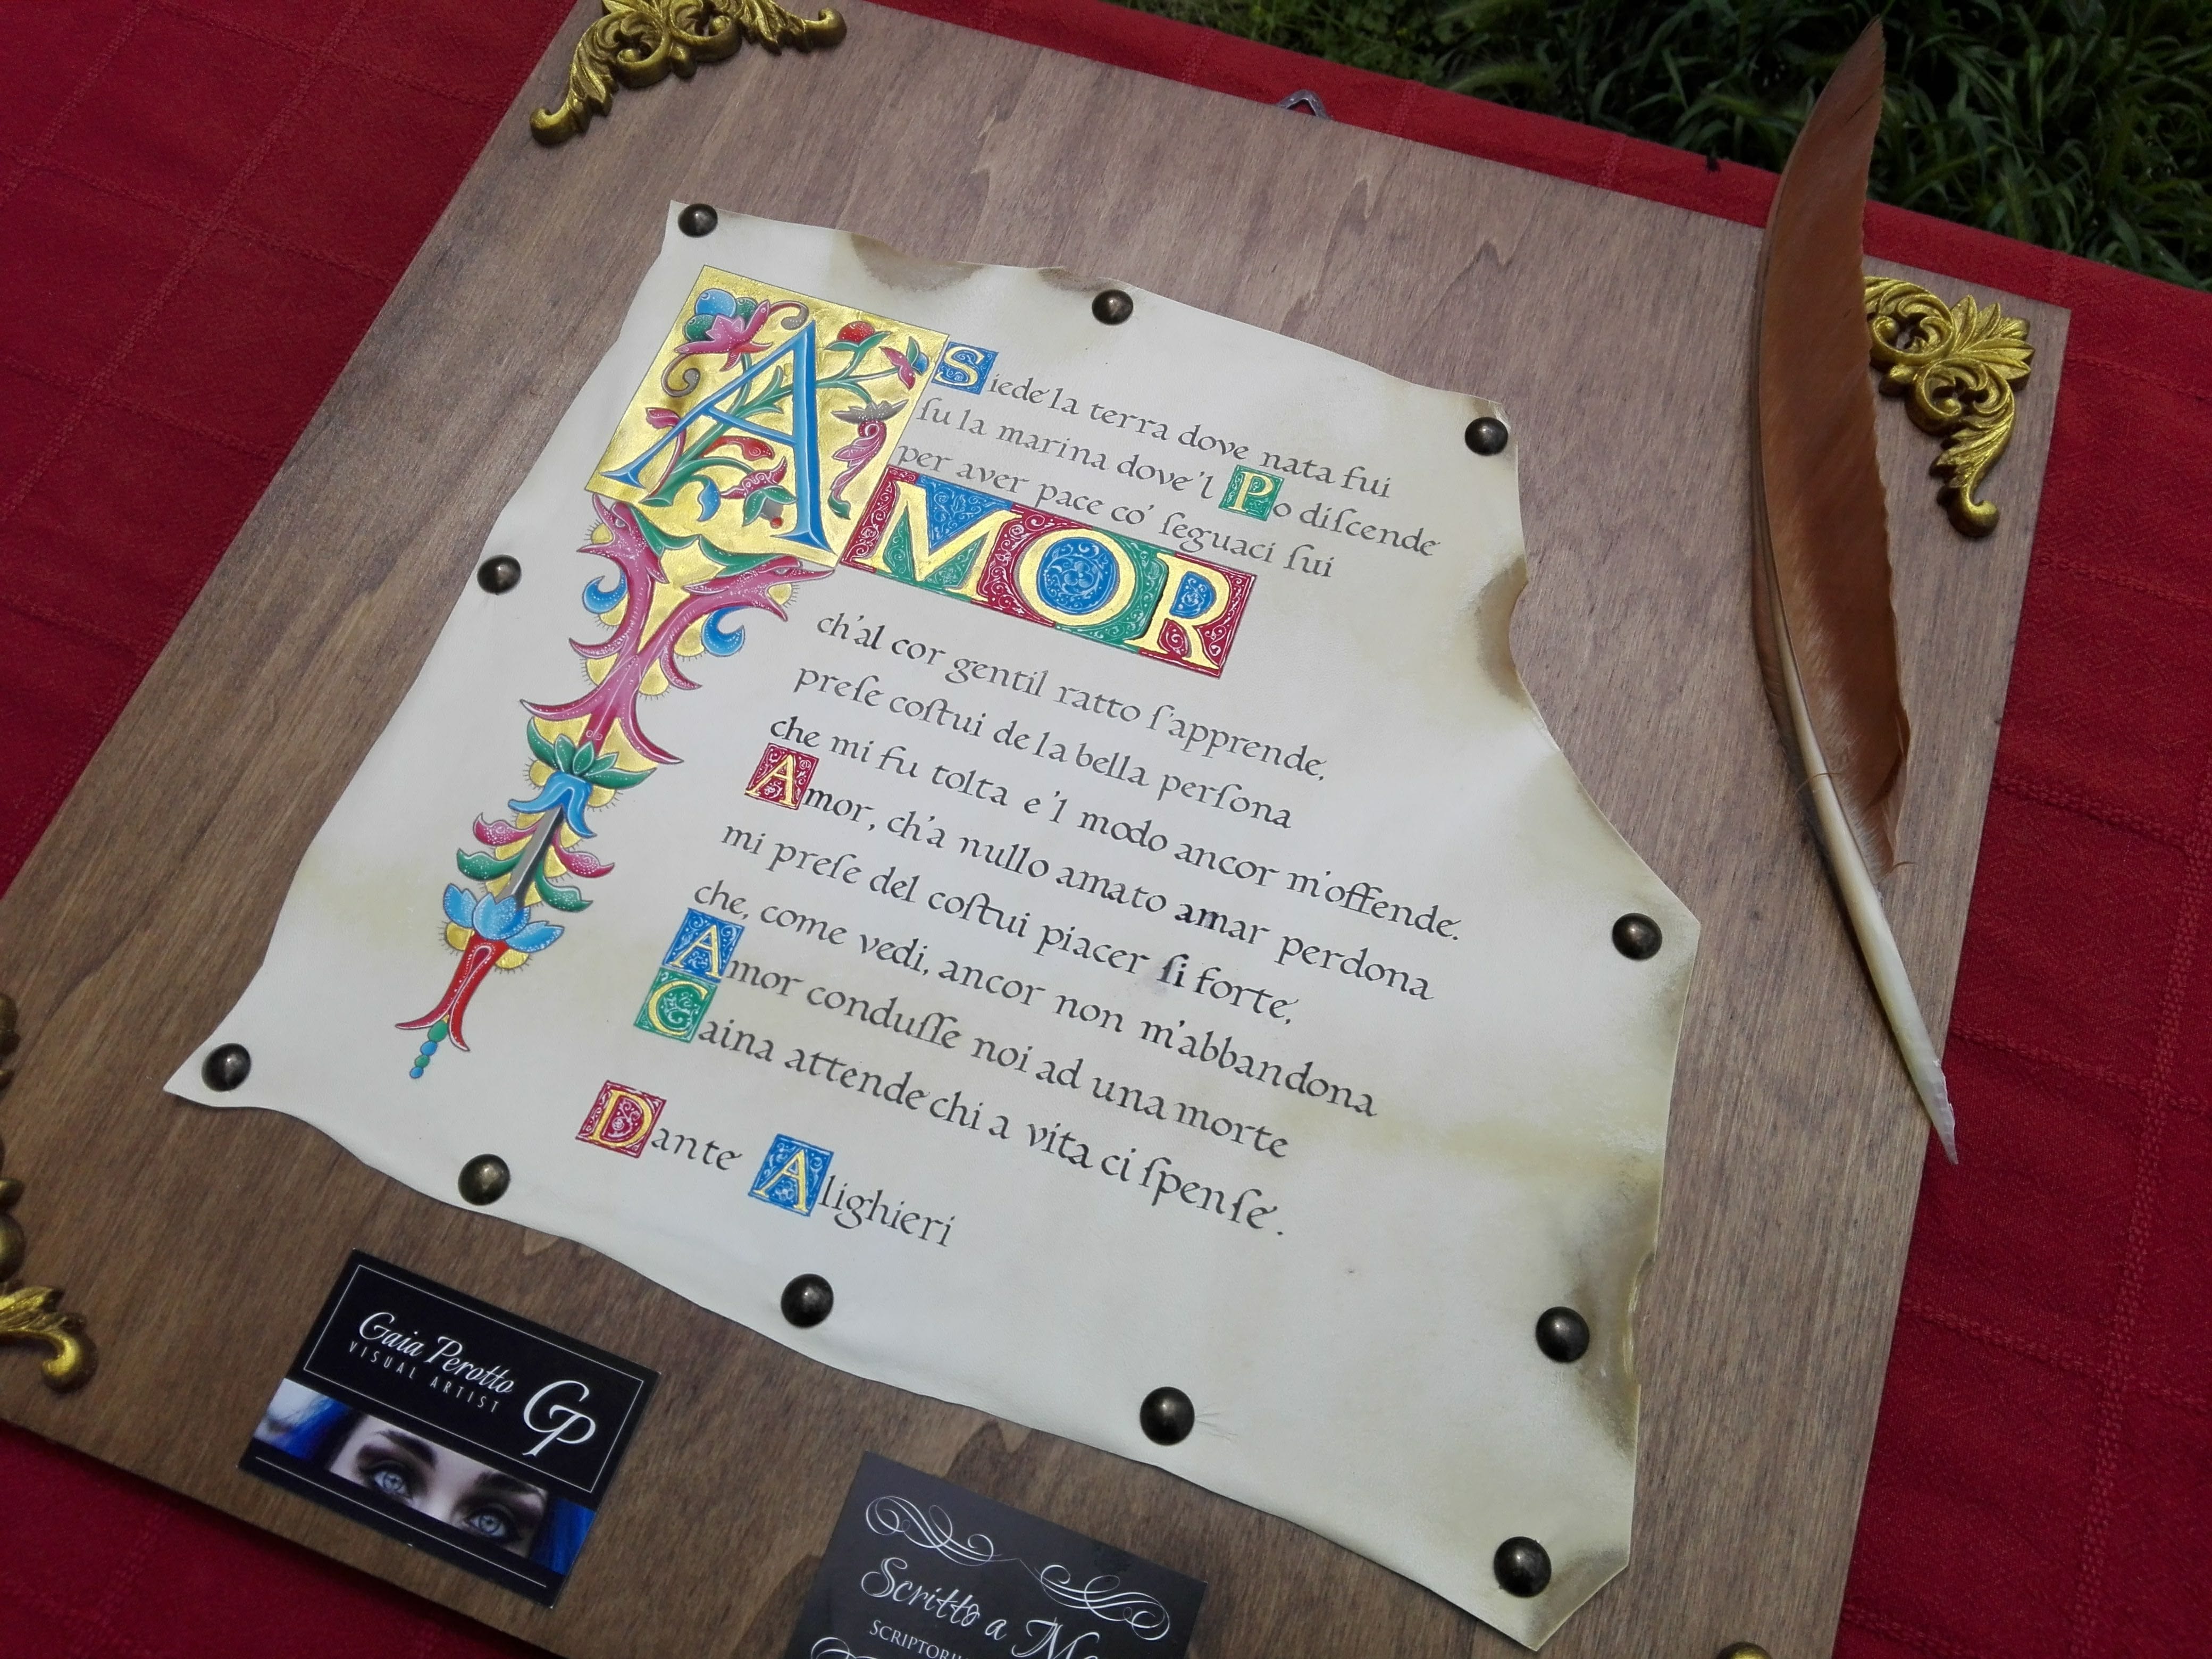 Siede la terra dove nata fui
ſu la marina dove'l Po diſcende
per aver pace co' ſeguaci ſui
AMOR
ch'al cor gentil ratto ſ'apprende,
preſe coſtui de la bella perſona
che mi fu tolta e 'l modo ancor m'offende.
Amor, ch'a nullo amato amar perdona
mi preſe del coſtui piacer ſi forte,
che, come vedi, ancor non m'abbandona
Amor conduſſe noi ad una morte
Caina attende chi a vita ci ſpenſe.
Dante Alighieri
Gaia Perotto
VISUAL ARTIST
GP
Scritto a